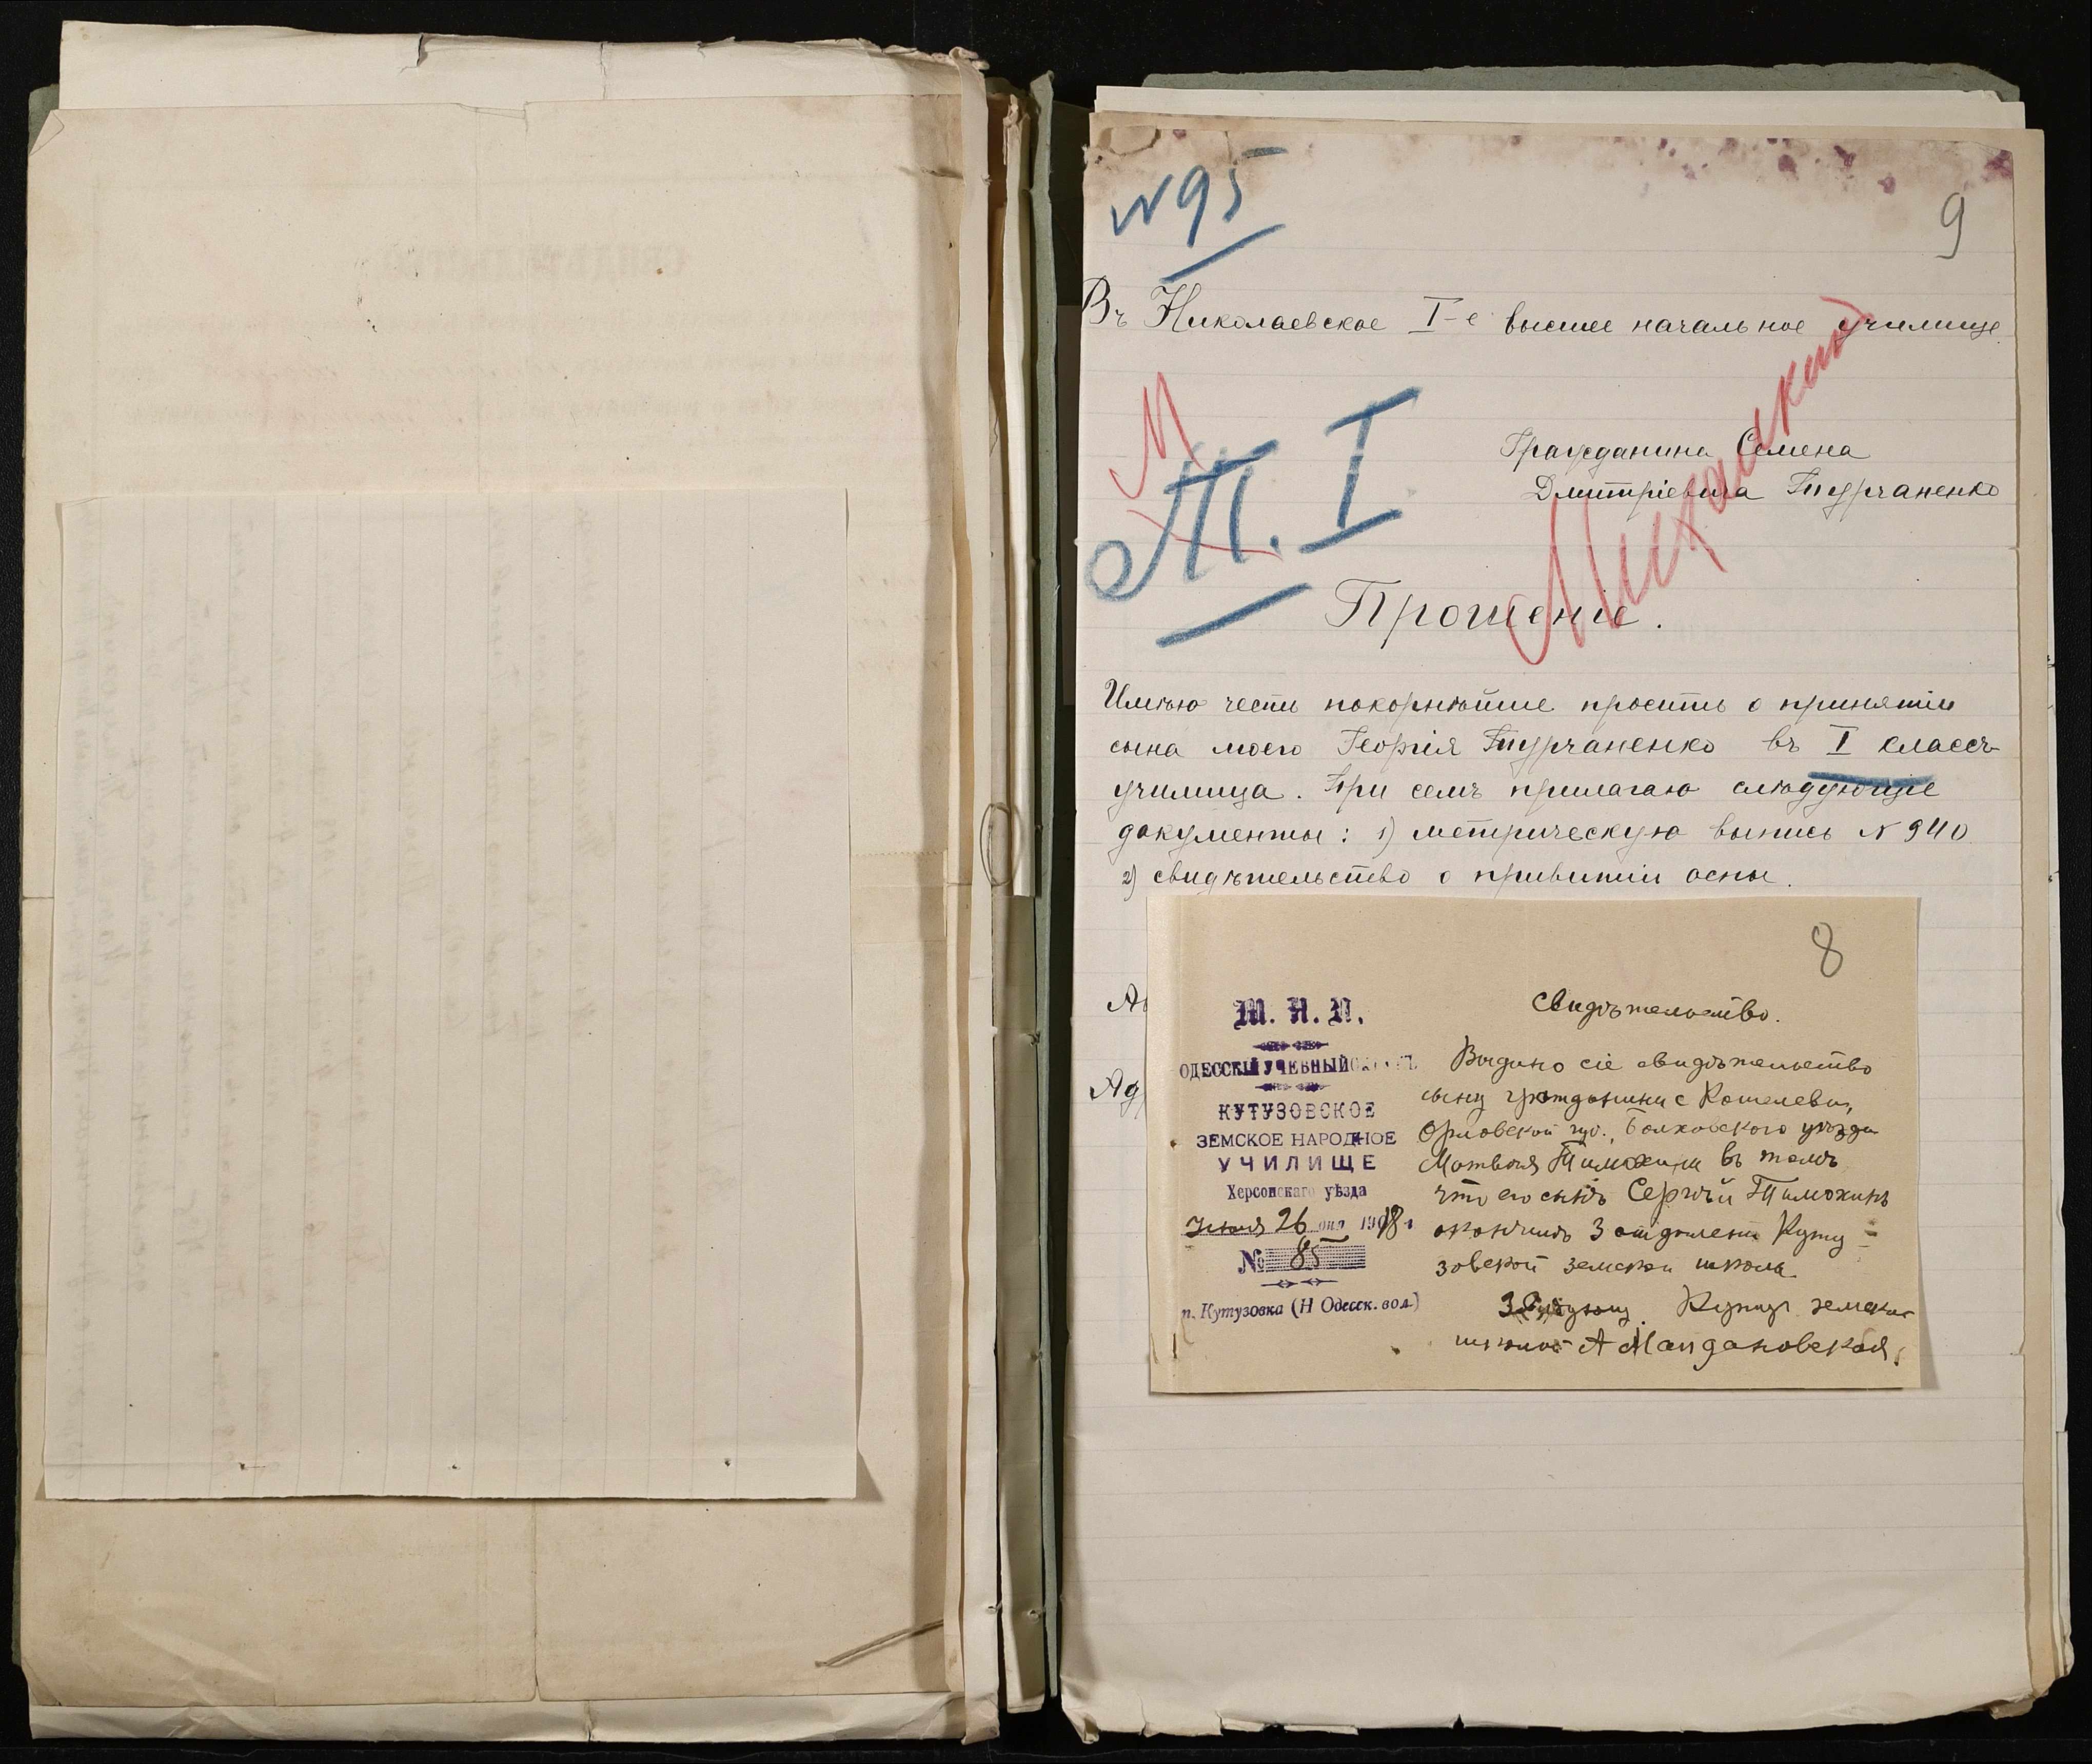 № 95
9
Въ Николаевское I-е высшее начальное училище
М
Т. I
Гражданина Семена
Дмитріевича Турчаненко
Прошеніе.
Имѣю честь покорнѣйше просить о принятіи
сына моего Георгія Турчаненко въ I классъ
училища. При семъ прилагаю слѣдующіе
документы: 1) метрическую выпись № 940
2) свидѣтельство о привитіи оспы.
Ад
8
М. Н. П.
ОДЕССКІЙ УЧЕБНЫЙ ОКРУГЪ
КУТУЗОВСКОЕ
ЗЕМСКОЕ НАРОДНОЕ
УЧИЛИЩЕ
Херсонскаго уѣзда
26 дня 1918 г
№ 85
п. Кутузовка (Н Одесск. вол.)
Свидѣтельство.
Выдано сіе свидѣтельство
сыну гражданина с Кошелева,
Орловской губ., Болховского уѣзда
Матвѣя Тимохина въ томъ
что его сынъ Сергѣй Тимохинъ
окончилъ 3 отдѣлені Куту=
зовской земской школы
Кутуз. земской
школой А Мандановская